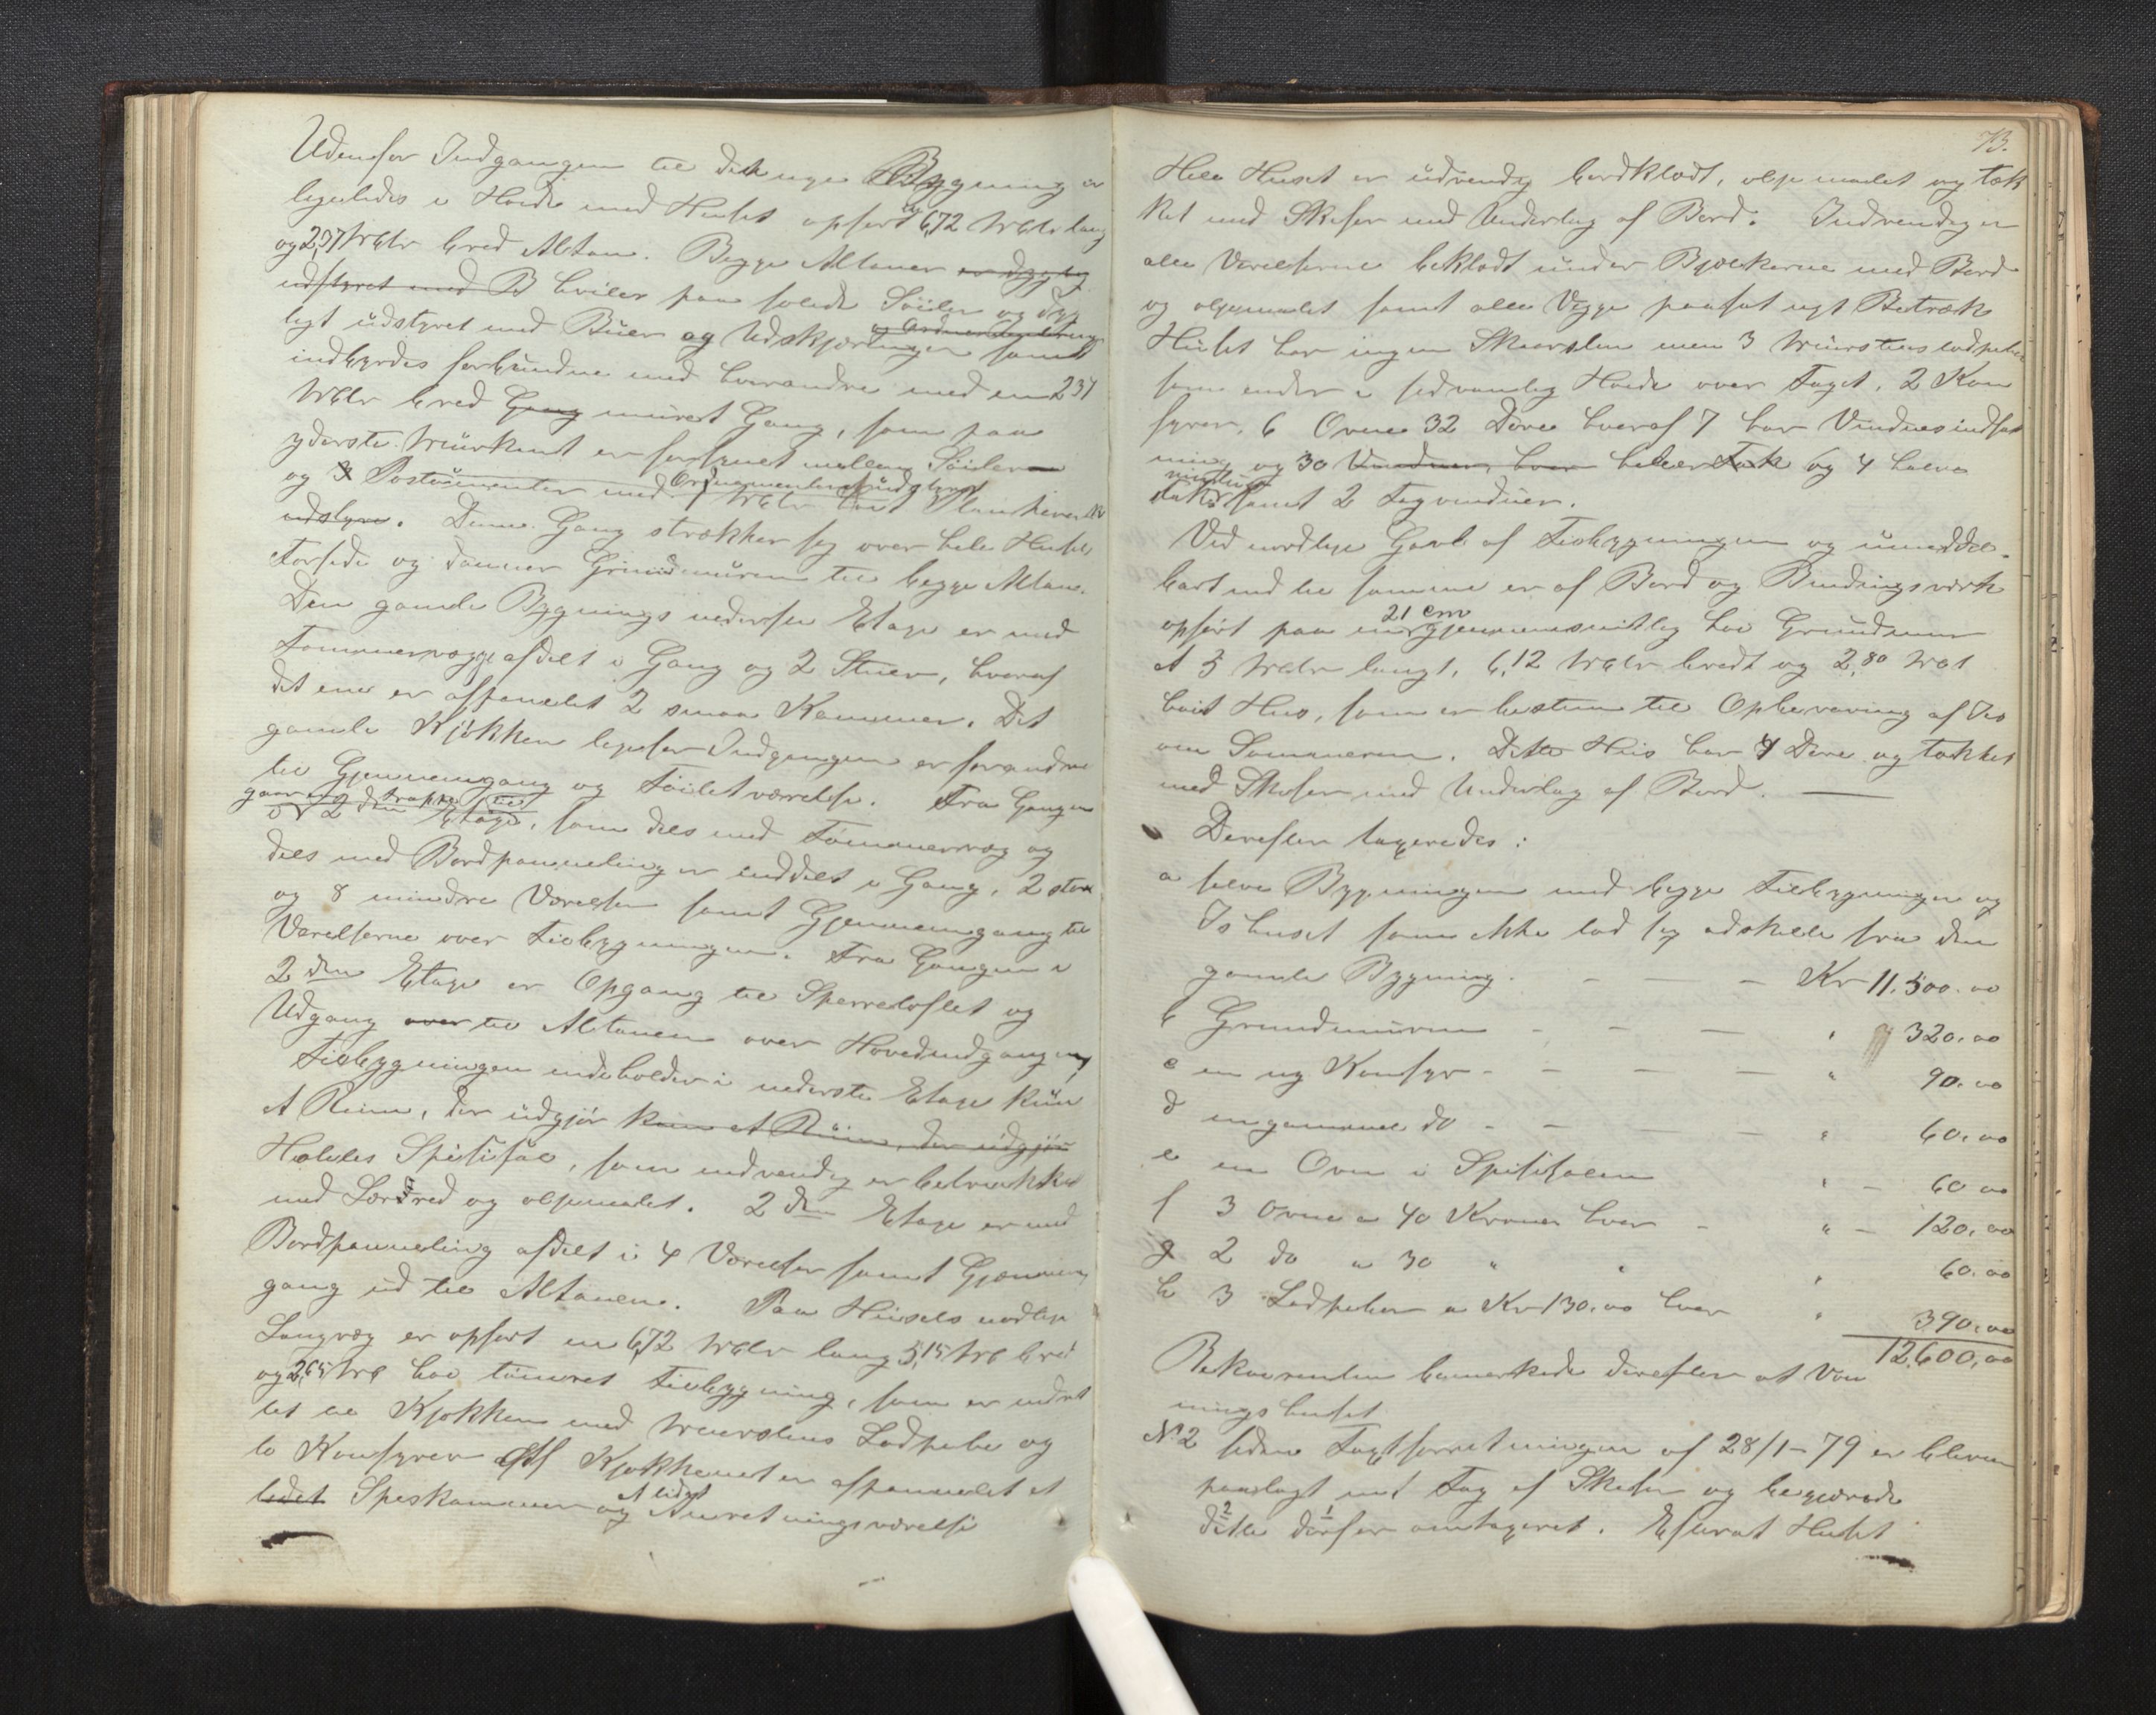 Udenfor Indgangen til den nye Bygning er
ligeledes i Høide med Huset opført en 6,72 Meter lang
og 2,37 Meter bred Altan. Begge Altaner er dygtig
udstyret med B hviler paa solide Søiler og dyg
ligt udstyret med Buer og Udskjæringer samt
indbyrdes forbundne med hverandre med en 237
Meter bred Gang muret Gang, som paa
yderste Murkant er forsynet mellem Søilerne
og Postumenter med 1 Meter høit Plankeverk
Ornamenter udstyret
udstyre. Denne Gang strækker sig over hele Husets
Forside og danner Grundmuren til begge Altane.
Den gamle Bygnings nederste Etage er med
Tømmervægge afdelt i Gang og 2 Stuer, hvoraf
det ene er afpanelet 2 smaa Kammer. Det
gamle Kjøkken ligefor Indgangen er forandret
til Gjennemgang og Toiletværelse. Fra Gangen
gaar en Trappe til
2den Etage, som dels med Tømmervæg og
dels med Bordpanneling er inddelt i Gang, 2 store
og 8 mindre Værelser samt Gjennemgang til
Værelserne over Tilbygningen. Fra Gangen i
2den Etage er Opgang til Sperreloftet og
Udgang over til Altanen over Hovedindgangen
Tilbygningen indeholder i nederste Etage kun
et Rum, der udgjør kun et Rum, der udgjør
Hotellets Spisesal, som indvendig er betrukket
med Lærred og oljemalet. 2den Etage er med
Bordpanneling afdelt i 4 Værelser samt Gjennem
gang ud til Altanen. Paa Husets nordlige
Langvæg er opført en 6,72 Meter lang 5,15 Met bred
og 2,65 Met høi tømret Tilbygning, som er indret
tet til Kjøkken med Murstens Ladpibe og
to Komfyrer Af Kjøkkenet er afpannelet et
lidet Spiskammer og et lidet Anretningsværelse
73.
Hele Huset er udvendig bordklædt, oljemalet og tæk
ket med Skifer med Underlag af Bord. Indvendig er
alle Værelserne beklædt under Bjælkerne med Bord
og oljemalet samt alle Vægge paasat nyt Betræk
Huset har ingen Skorsten men 3 Murstens ladpiber
som ender i sedvanlig Høide over Taget, 2 Kom
fyrer, 6 Ovne 32 Døre hvoraf 7 har Vinduesindfat
ning og 30 Vinduer, hver heler Fak og 4 halve
vinduer
Fak samt 2 Tagvinduer.
Ved nordlige Gavl af Tilbygningen og umiddel-
bart ind til samme er af Bord og Bindingsværk
opført paa en 21 cm gjennemsnitlig høi Grundmur
et 5 Meter langt, 6,12 Meter bredt og 2,80 Met
høit Hus, som er bestemt til Opbevaring af Is
om Sommeren. Dette Hus har 4 Døre og tækket
med Skifer med Underlag af Bord. —
Derefter taxeredes:
a selve Bygningen med begge Tilbygninger og
Ishuset som ikke lod sig adskille fra den
gamle Bygning. - — - Kr 11.500.00
b Grundmuren - - — " 320.00
c en ny Komfyr - - — — " 90.00
d en gammel do - - — — " 60.00
e en Ovn i Spisesalen " — 60 00
f 3 Ovne a 40 Kroner hver - " — 120.00
g 2 do a 30 " " " 60.00
h 3 Ladpiber a Kr 130.00 hver " 390.00
12,600,00
Rekvirenten bemærkede derefter at Vaa
ningshuset
No 2 siden Taxtforretningen af 28/1-79 er bleven
paalagt nyt Tag af Skifer og begjærede
2 1
dette derfor omtaxeret. Efterat Huset